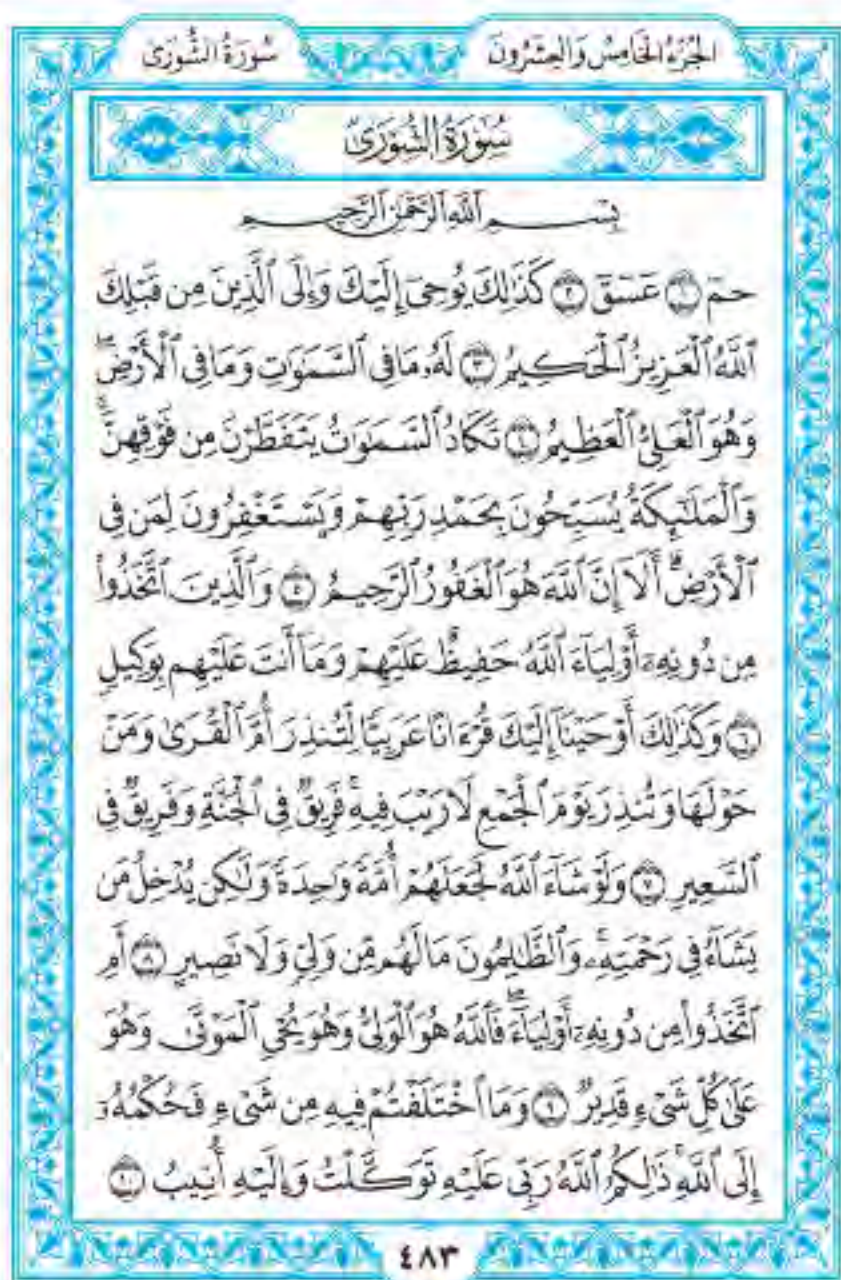 الجزء الخامس والعشرون
سورة الشورى
سُورَةُ الشُّورَىٰ
بِسْمِ ٱللَّهِ ٱلرَّحْمَٰنِ ٱلرَّحِيمِ
حمٓ ١ عٓسٓقٓ ٢ كَذَٰلِكَ يُوحِىٓ إِلَيْكَ وَإِلَى ٱلَّذِينَ مِن قَبْلِكَ
ٱللَّهُ ٱلْعَزِيزُ ٱلْحَكِيمُ ٣ لَهُۥ مَا فِى ٱلسَّمَٰوَٰتِ وَمَا فِى ٱلْأَرْضِۖ
وَهُوَ ٱلْعَلِىُّ ٱلْعَظِيمُ ٤ تَكَادُ ٱلسَّمَٰوَٰتُ يَتَفَطَّرْنَ مِن فَوْقِهِنَّۚ
وَٱلْمَلَٰٓئِكَةُ يُسَبِّحُونَ بِحَمْدِ رَبِّهِمْ وَيَسْتَغْفِرُونَ لِمَن فِى
ٱلْأَرْضِۗ أَلَآ إِنَّ ٱللَّهَ هُوَ ٱلْغَفُورُ ٱلرَّحِيمُ ٥ وَٱلَّذِينَ ٱتَّخَذُوا۟
مِن دُونِهِۦٓ أَوْلِيَآءَ ٱللَّهُ حَفِيظٌ عَلَيْهِمْ وَمَآ أَنتَ عَلَيْهِم بِوَكِيلٍ
٦ وَكَذَٰلِكَ أَوْحَيْنَآ إِلَيْكَ قُرْءَانًا عَرَبِيًّا لِّتُنذِرَ أُمَّ ٱلْقُرَىٰ وَمَنْ
حَوْلَهَا وَتُنذِرَ يَوْمَ ٱلْجَمْعِ لَا رَيْبَ فِيهِۚ فَرِيقٌ فِى ٱلْجَنَّةِ وَفَرِيقٌ فِى
ٱلسَّعِيرِ ٧ وَلَوْ شَآءَ ٱللَّهُ لَجَعَلَهُمْ أُمَّةً وَٰحِدَةً وَلَٰكِن يُدْخِلُ مَن
يَشَآءُ فِى رَحْمَتِهِۦۚ وَٱلظَّٰلِمُونَ مَا لَهُم مِّن وَلِىٍّ وَلَا نَصِيرٍ ٨ أَمِ
ٱتَّخَذُوا۟ مِن دُونِهِۦٓ أَوْلِيَآءَۖ فَٱللَّهُ هُوَ ٱلْوَلِىُّ وَهُوَ يُحْىِ ٱلْمَوْتَىٰ وَهُوَ
عَلَىٰ كُلِّ شَىْءٍ قَدِيرٌ ٩ وَمَا ٱخْتَلَفْتُمْ فِيهِ مِن شَىْءٍ فَحُكْمُهُۥٓ
إِلَى ٱللَّهِۚ ذَٰلِكُمُ ٱللَّهُ رَبِّى عَلَيْهِ تَوَكَّلْتُ وَإِلَيْهِ أُنِيبُ ١٠
٤٨٣